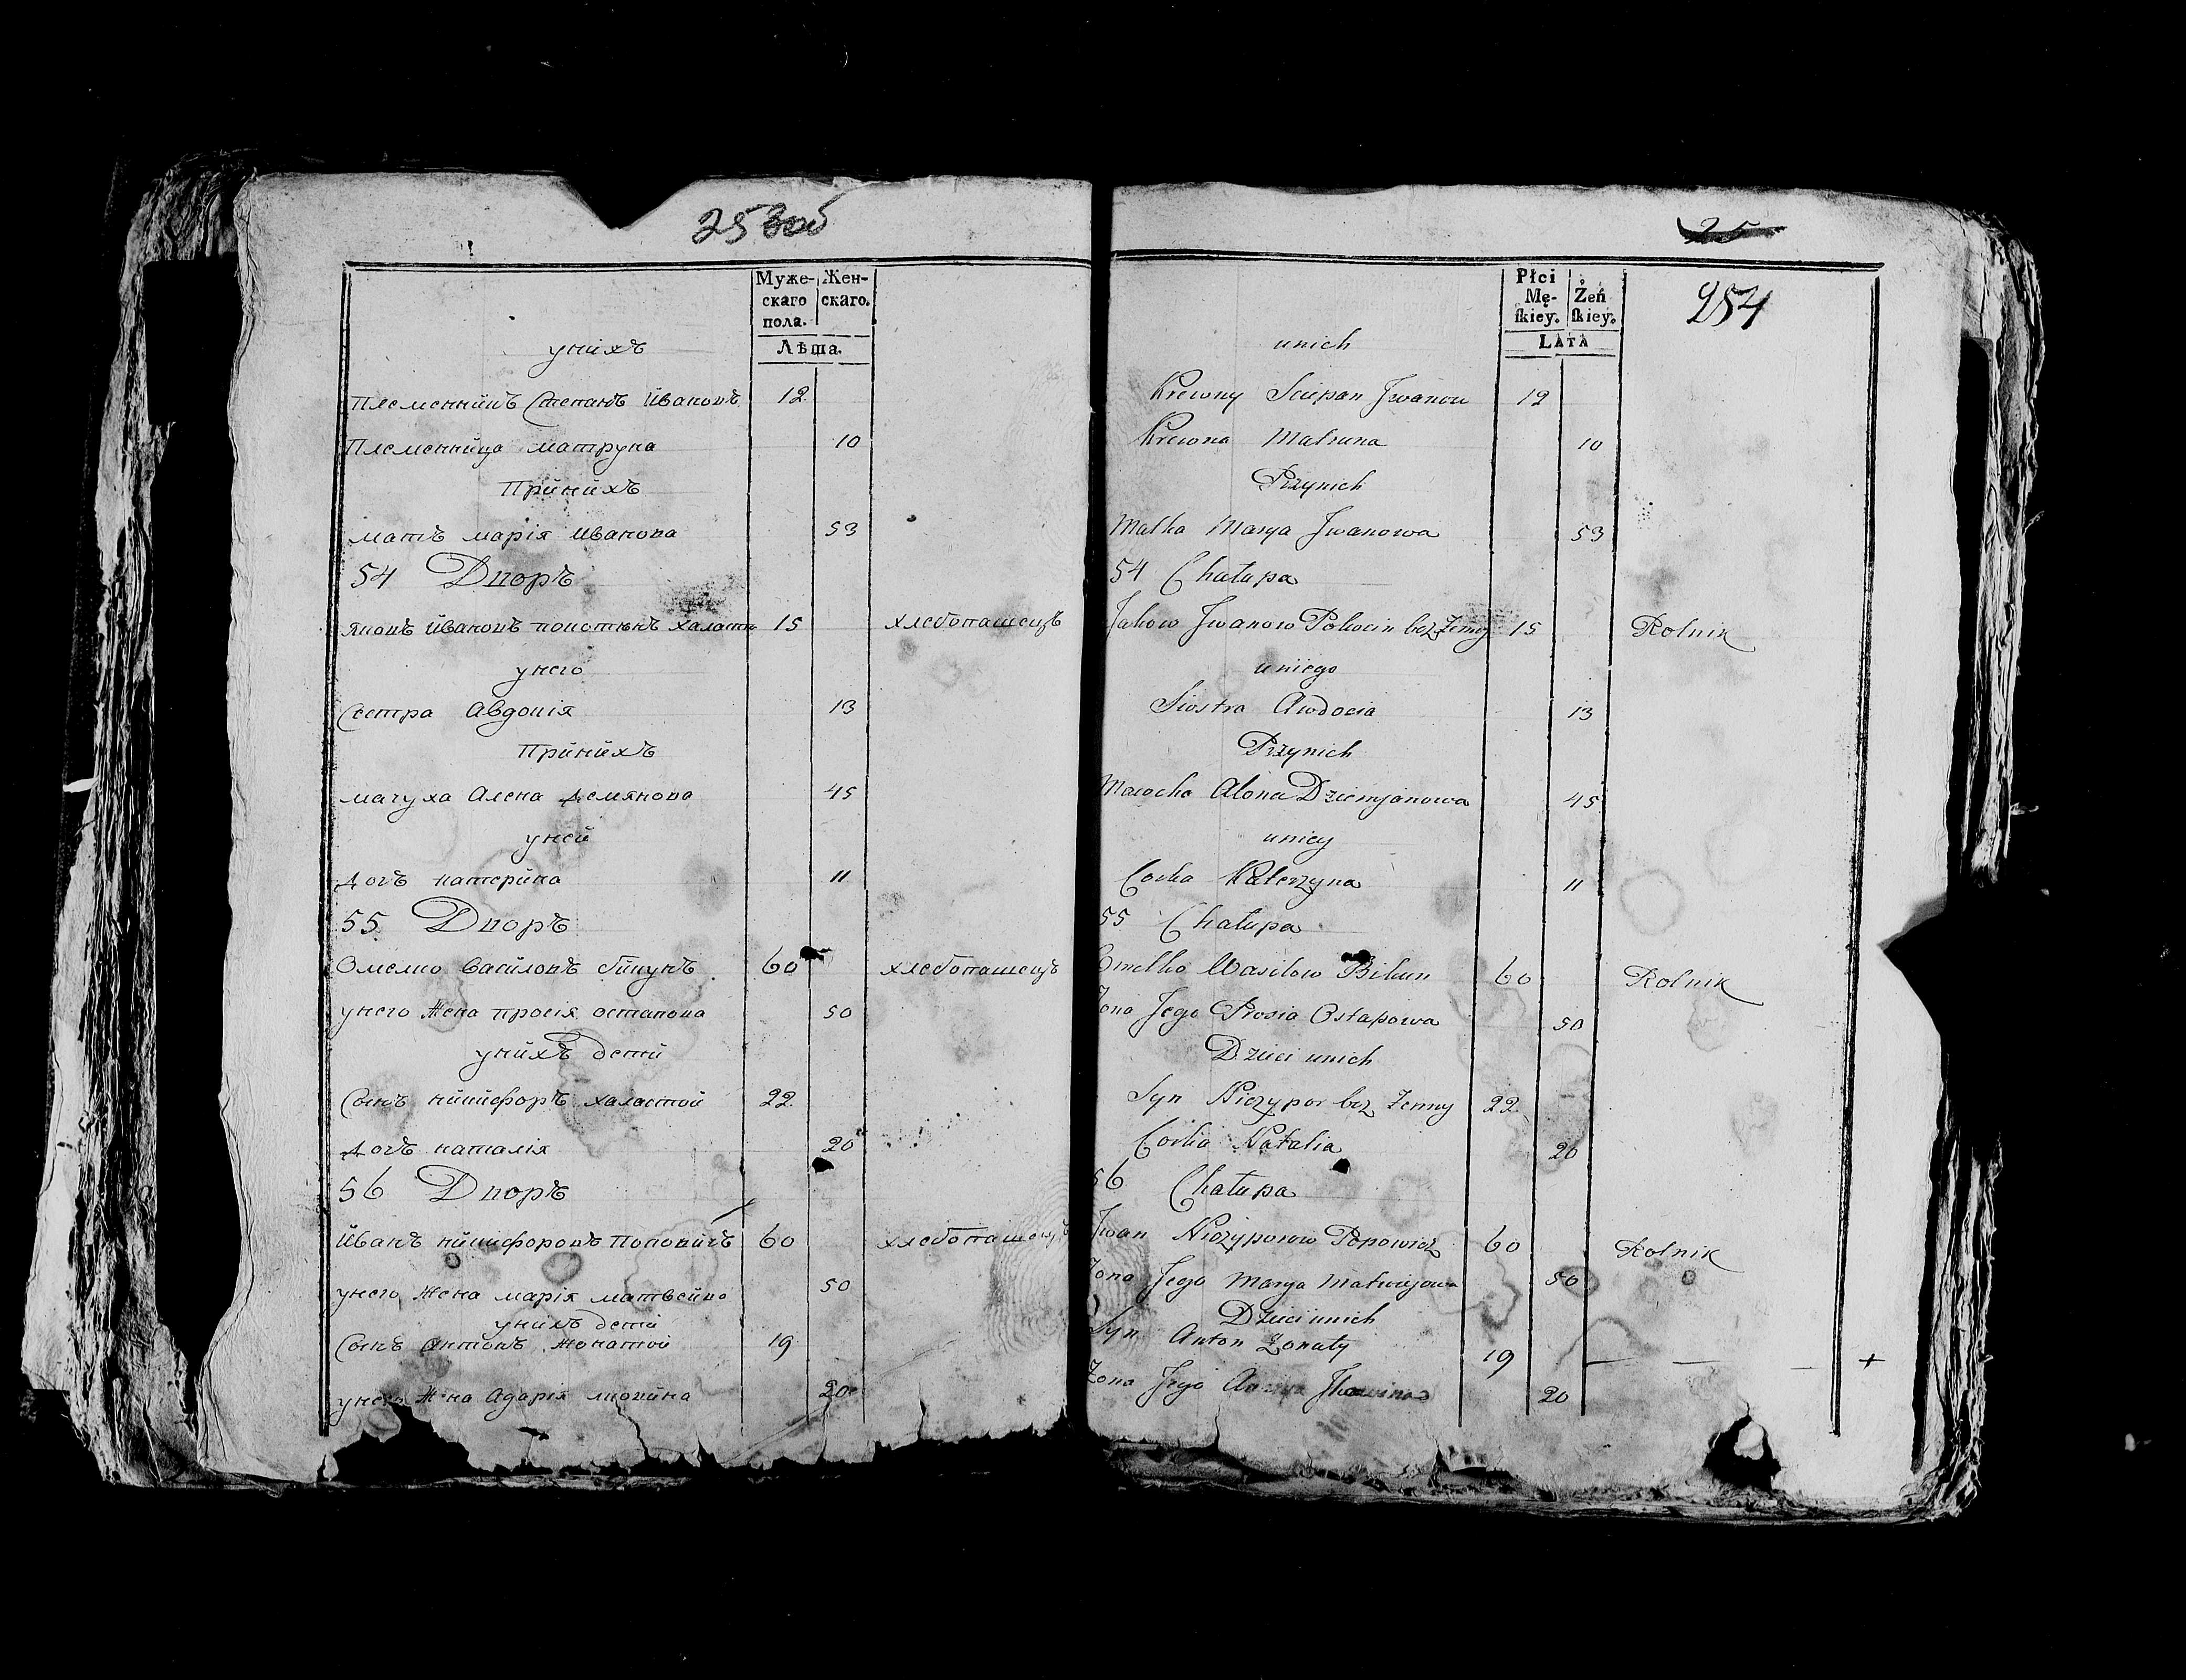 253об
Муже- Жен-
скаго скаго.
пола.
Лѣта.
унихъ
Племенникъ Степанъ Ивановъ 12
Племенница матруна 10
Принихъ
мать марія Иванова 53
54 Дворъ
Яковъ Ивановъ покотинъ халасты 15 хлебопашецъ
унего
Сестра Авдокія 13
Принихъ
мачуха Алена Демянова 45
уней
Дочь катерина 11
55 Дворъ
Омелко Василовъ бикунъ 60 хлебопашецъ
унего Жена просія остапова 50
унихъ дети
Сынъ никифоръ халастой 22
Дочь наталія 20
56 Дворъ
Иванъ никифоровъ Поповичъ 60 хлебопашецъ
унего Жена марія матвейва 50
унихъ дети
Сынъ Антонъ Жонатой 19
унего Жена 20
25
Płci
Mę- Żeń
ſkiey. ſkiey.
LATA
254
unich
Krewny Sciepan Jwanow 12
Krewna Matruna 10
Przynich
Matka Marya Jwanowa 53
54 Chałupa
Jakow Jwanow Pokocin bez Zenny 15 Rolnik
uniego
Siostra Awdocia 13
Przynich
Macocha Alona Dziemjanowa 45
uniey
Corka Katerzyna 11
55 Chałupa
Omelko Wasilow Bikun 60 Rolnik
Zona Jego Prosia Ostapowa 50
Dzieci unich
Syn Niczypor bez Zenny 22
Corka Natalia 20
56 Chałupa
Jwan Niczyporow Popowicz 60 Rolnik
Zona Jego Marya Matwiejowa 50
Dzieci unich
Syn Anton Zonaty 19
Zona Jego 20